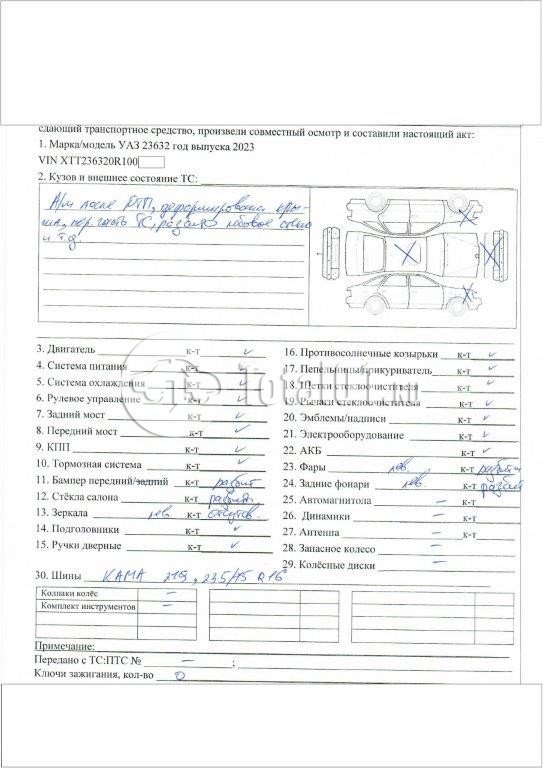 сдающий транспортное средство, произвели совместный осмотр и составили настоящий акт:
1. Марка/модель УАЗ 23632 год выпуска 2023
VIN XTT236320R100
2. Кузов и внешнее состояние ТС:
А/м после ДТП, деформирована кры-
ша, пер. часть ТС, разбито лобовое стекло
и т.д.
3. Двигатель к-т ✓
4. Система питания к-т ✓
5. Система охлаждения к-т ✓
6. Рулевое управление к-т ✓
7. Задний мост к-т ✓
8. Передний мост к-т ✓
9. КПП к-т ✓
10. Тормозная система к-т ✓
11. Бампер передний/задний к-т разбит
12. Стёкла салона к-т разбиты
13. Зеркала лев. к-т отсутств.
14. Подголовники к-т ✓
15. Ручки дверные к-т ✓
16. Противосолнечные козырьки к-т ✓
17. Пепельницы/прикуриватель к-т ✓
18. Щетки стеклоочистителя к-т ✓
19. Рычаги стеклоочистителя к-т ✓
20. Эмблемы/надписи к-т ✓
21. Электрооборудование к-т ✓
22. АКБ к-т ✓
23. Фары лев. к-т разбита
24. Задние фонари лев. к-т разбит
25. Автомагнитола – к-т
26. Динамики – к-т
27. Антенна – к-т
28. Запасное колесо –
29. Колёсные диски –
30. Шины КАМА 219, 235/75 R16
Колпаки колёс –
Комплект инструментов –
Примечание:
Передано с ТС:ПТС № – ;
Ключи зажигания, кол-во 0